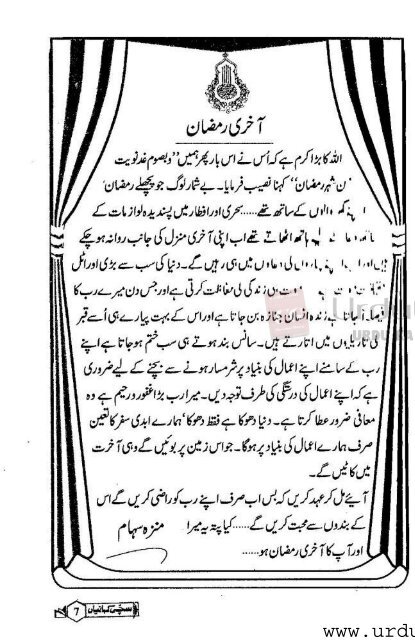 آخری رمضان
اللہ کا بڑا کرم ہے کہ اُس نے اس بار پھر ہمیں ”وبصوم غدنویت
شہر رمضان“ کہنا نصیب فرمایا۔ بے شمار لوگ جو پچھلے رمضان
کے ساتھ تھے...... سحری اور افطار میں پسندیدہ لوازمات کے
ہاتھ اٹھاتے تھے اب اپنی آخری منزل کی جانب روانہ ہوچکے
میں ہی رہیں گے۔ دنیا کی سب سے بڑی اور اٹل
زندگی کی حفاظت کرتی ہے اور جس دن میرے رب کا
زندہ انسان جنازہ بن جاتا ہے اور اس کے بہت پیارے ہی اُسے قبر
میں اتارتے ہیں۔ سانس بند ہوتے ہی سب ختم ہوجاتا ہے اپنے
رب کے سامنے اپنے اعمال کی بنیاد پر شرمسار ہونے سے بچنے کے لیے ضروری
ہے کہ اپنے اعمال کی درستگی کی طرف توجہ دیں۔ میرا رب بڑا غفور و رحیم ہے وہ
معافی ضرور عطا کرتا ہے۔ دنیا دھوکا ہے فقط دھوکا‘ ہمارے ابدی سفر کا تعین
صرف ہمارے اعمال کی بنیاد پر ہوگا۔ جو اس زمین پر بوئیں گے وہی آخرت
میں کاٹیں گے۔
آیئے مل کر عہد کریں کہ بس اب صرف اپنے رب کو راضی کریں گے اس
کے بندوں سے محبت کریں گے...... کیا پتہ یہ میرا
اور آپ کا آخری رمضان ہو......
منزہ سہام
7 سچی کہانیاں
www.urdu